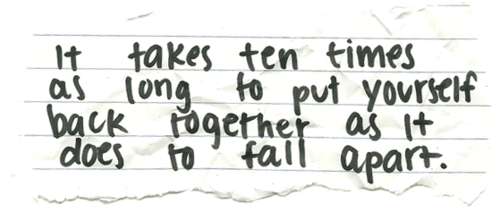 It takes ten times
as long to put yourself
back together as it
does to fall apart.